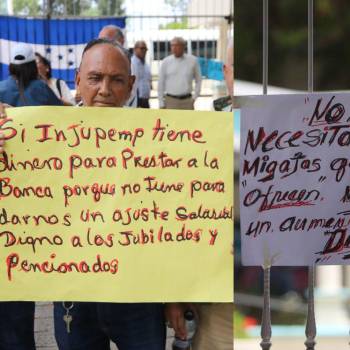 Si Injupemp tiene
dinero para Prestar a la
Banca porque no Tiene para
darnos un ajuste Salarial
Digno a los Jubilados y
Pencionados
No
Necesita
Migajas qu
"Ofrecen".
un aumen
Di